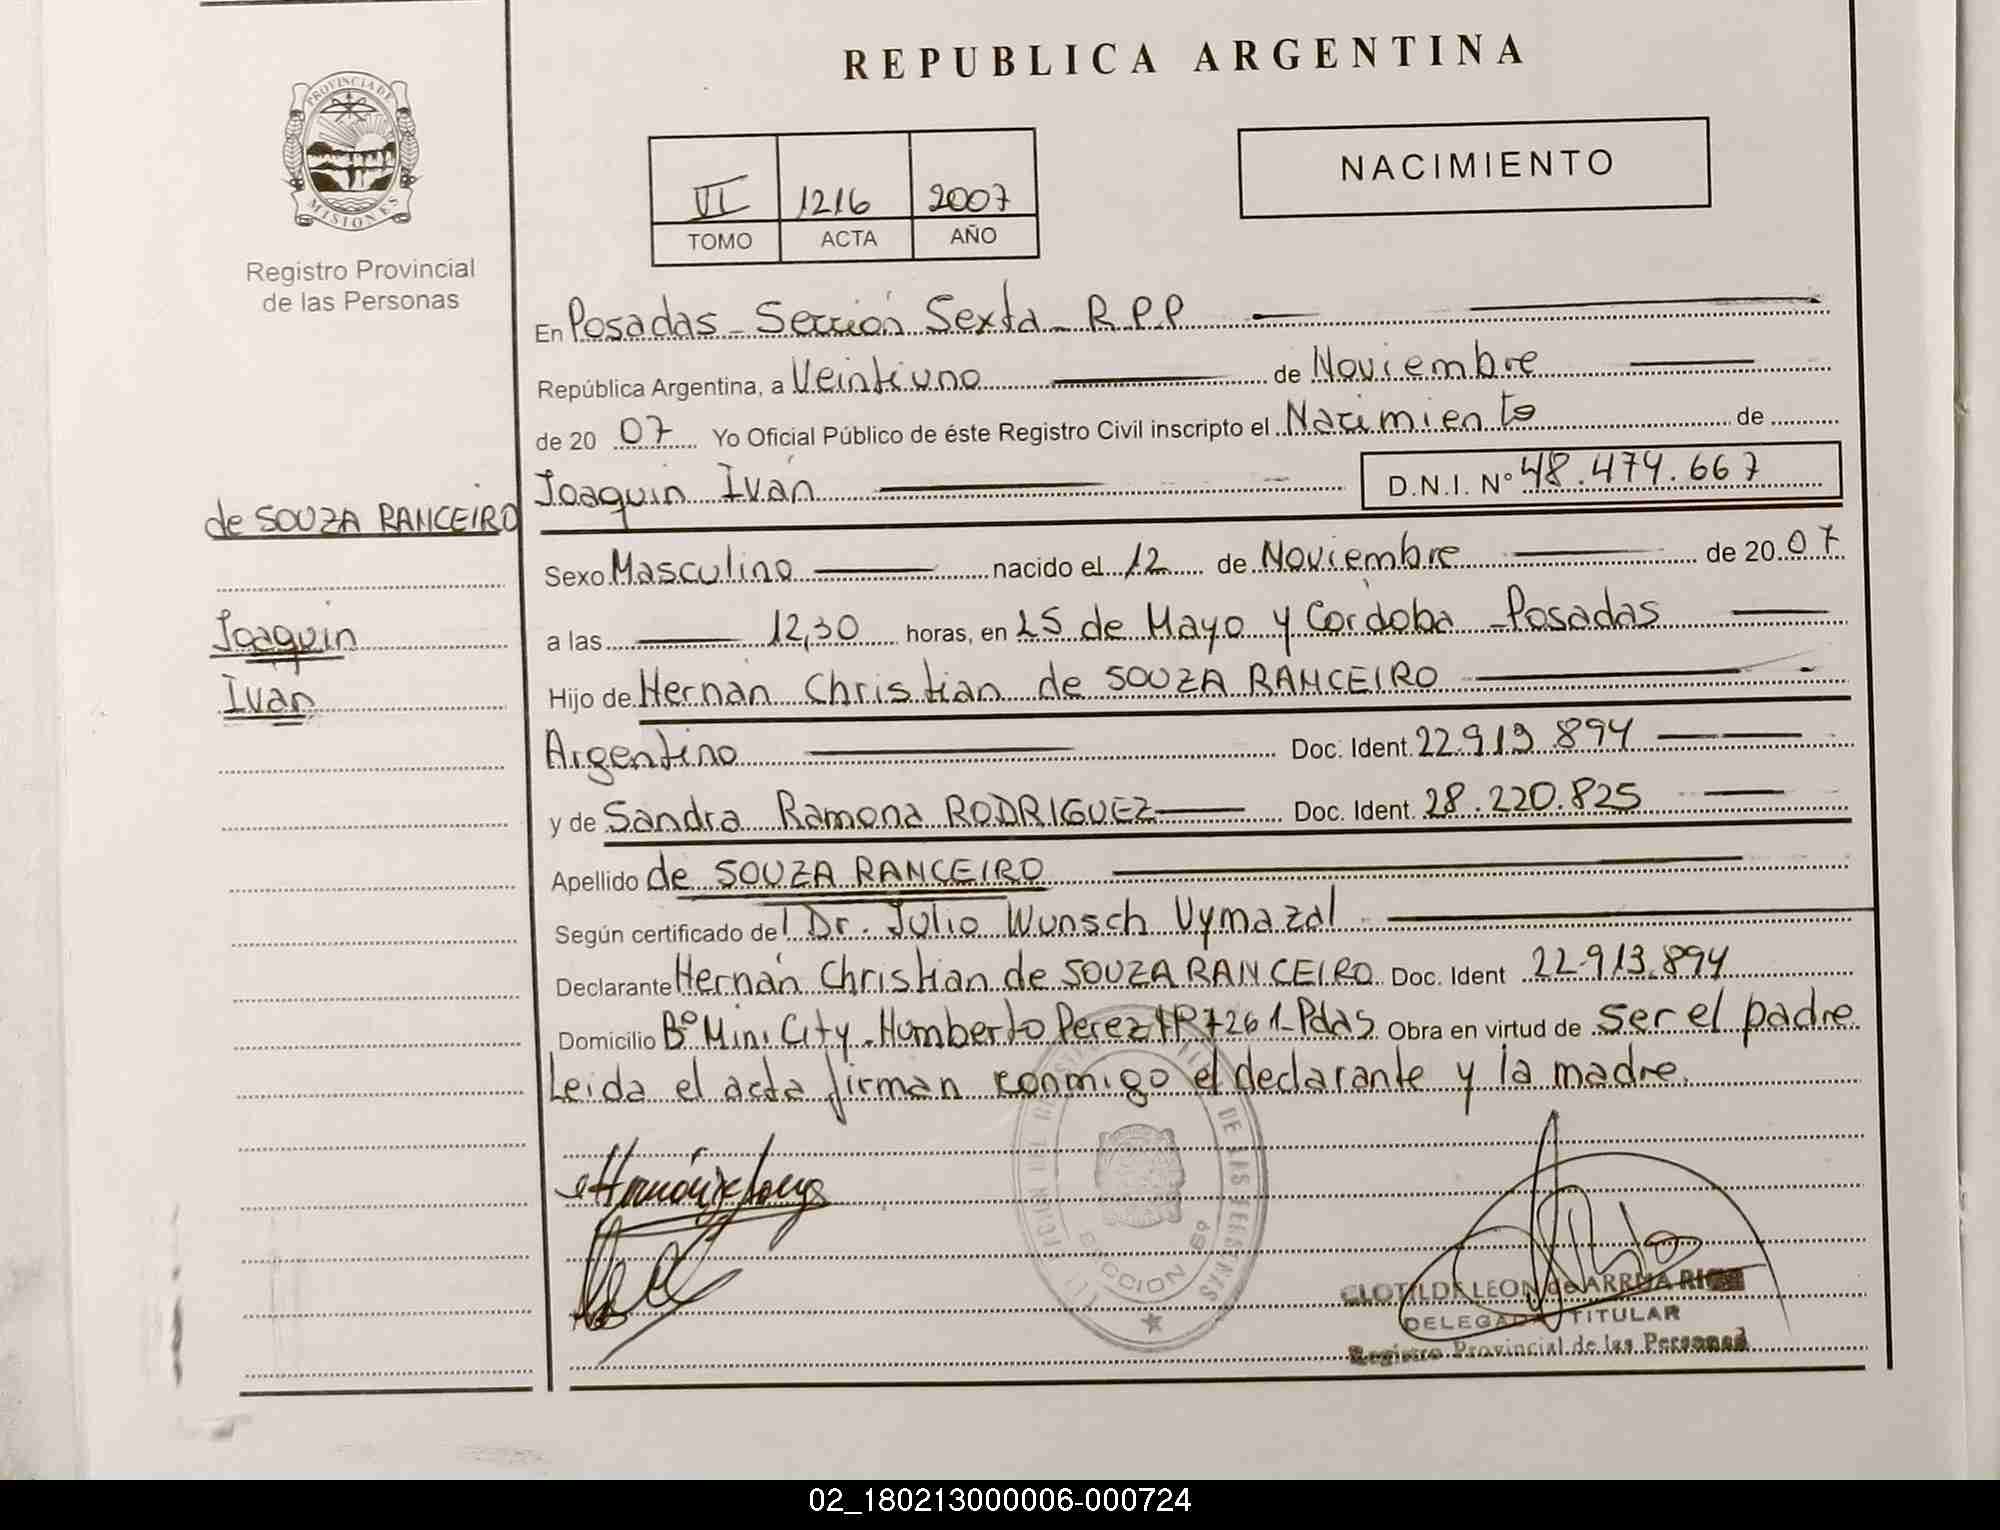 REPUBLICA ARGENTINA
PROVINCIA DE
MISIONES
Registro Provincial
de las Personas
VI 1216 2007
TOMO ACTA AÑO
NACIMIENTO
En Posadas - Sección Sexta - R.P.P
República Argentina, a Veintiuno de Noviembre
de 20 07 Yo Oficial Público de éste Registro Civil inscripto el Nacimiento de
Joaquin Iván D.N.I. N° 48.474.667
de SOUZA RANCEIRO
Joaquin
Ivan
Sexo Masculino nacido el 12 de Noviembre de 20 07
a las 12,30 horas, en 25 de Mayo y Cordoba - Posadas
Hijo de Hernán Christian de SOUZA RANCEIRO
Argentino Doc. Ident. 22.913.894
y de Sandra Ramona RODRIGUEZ Doc. Ident. 28.220.825
Apellido de SOUZA RANCEIRO
Según certificado del Dr. Julio Wunsch Vymazal
Declarante Hernán Christian de SOUZA RANCEIRO Doc. Ident 22.913.894
Domicilio B° Mini City - Humberto Perez N° 7261 - Pdas Obra en virtud de ser el padre
Leida el acta firman conmigo el declarante y la madre.
DE LAS PERSONAS
SECCION 6ª
CLOTILDE LEON de ARRUA
DELEGADA TITULAR
Registro Provincial de las Personas
02_180213000006-000724